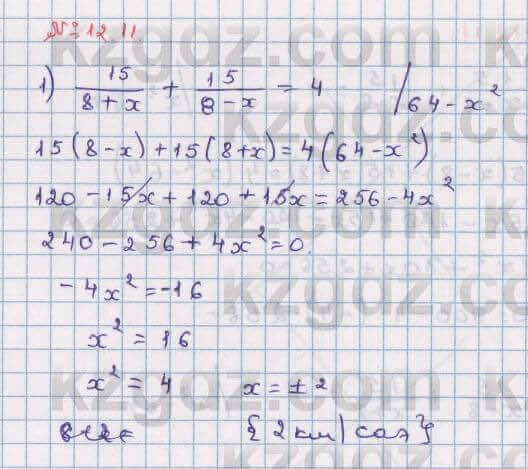 № 12.11.
1) 15/(8+x) + 15/(8-x) = 4 /64-x²
15(8-x)+15(8+x)=4(64-x²)
120-15x+120+15x=256-4x²
240-256+4x²=0
-4x²=-16
x²=16
x²=4 x=±2
{2км/сағ}
kzgdz.com